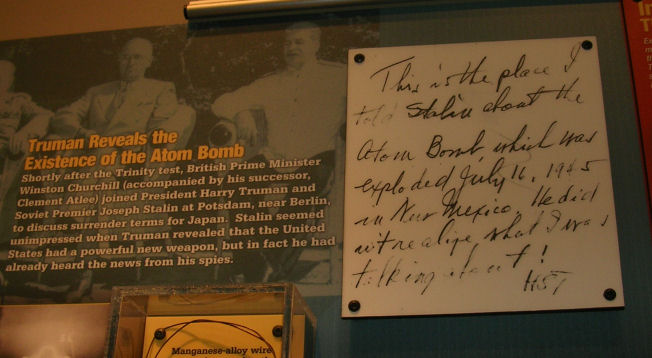 Truman Reveals the
Existence of the Atom Bomb
Shortly after the Trinity test, British Prime Minister
Winston Churchill (accompanied by his successor,
Clement Atlee) joined President Harry Truman and
Soviet Premier Joseph Stalin at Potsdam, near Berlin,
to discuss surrender terms for Japan. Stalin seemed
unimpressed when Truman revealed that the United
States had a powerful new weapon, but in fact he had
already heard the news from his spies.
This is the place I
told Stalin about the
Atom Bomb, which was
exploded July 16, 1945
in New Mexico. He did
n't realize what I was
talking about!
HST
Manganese-alloy wire